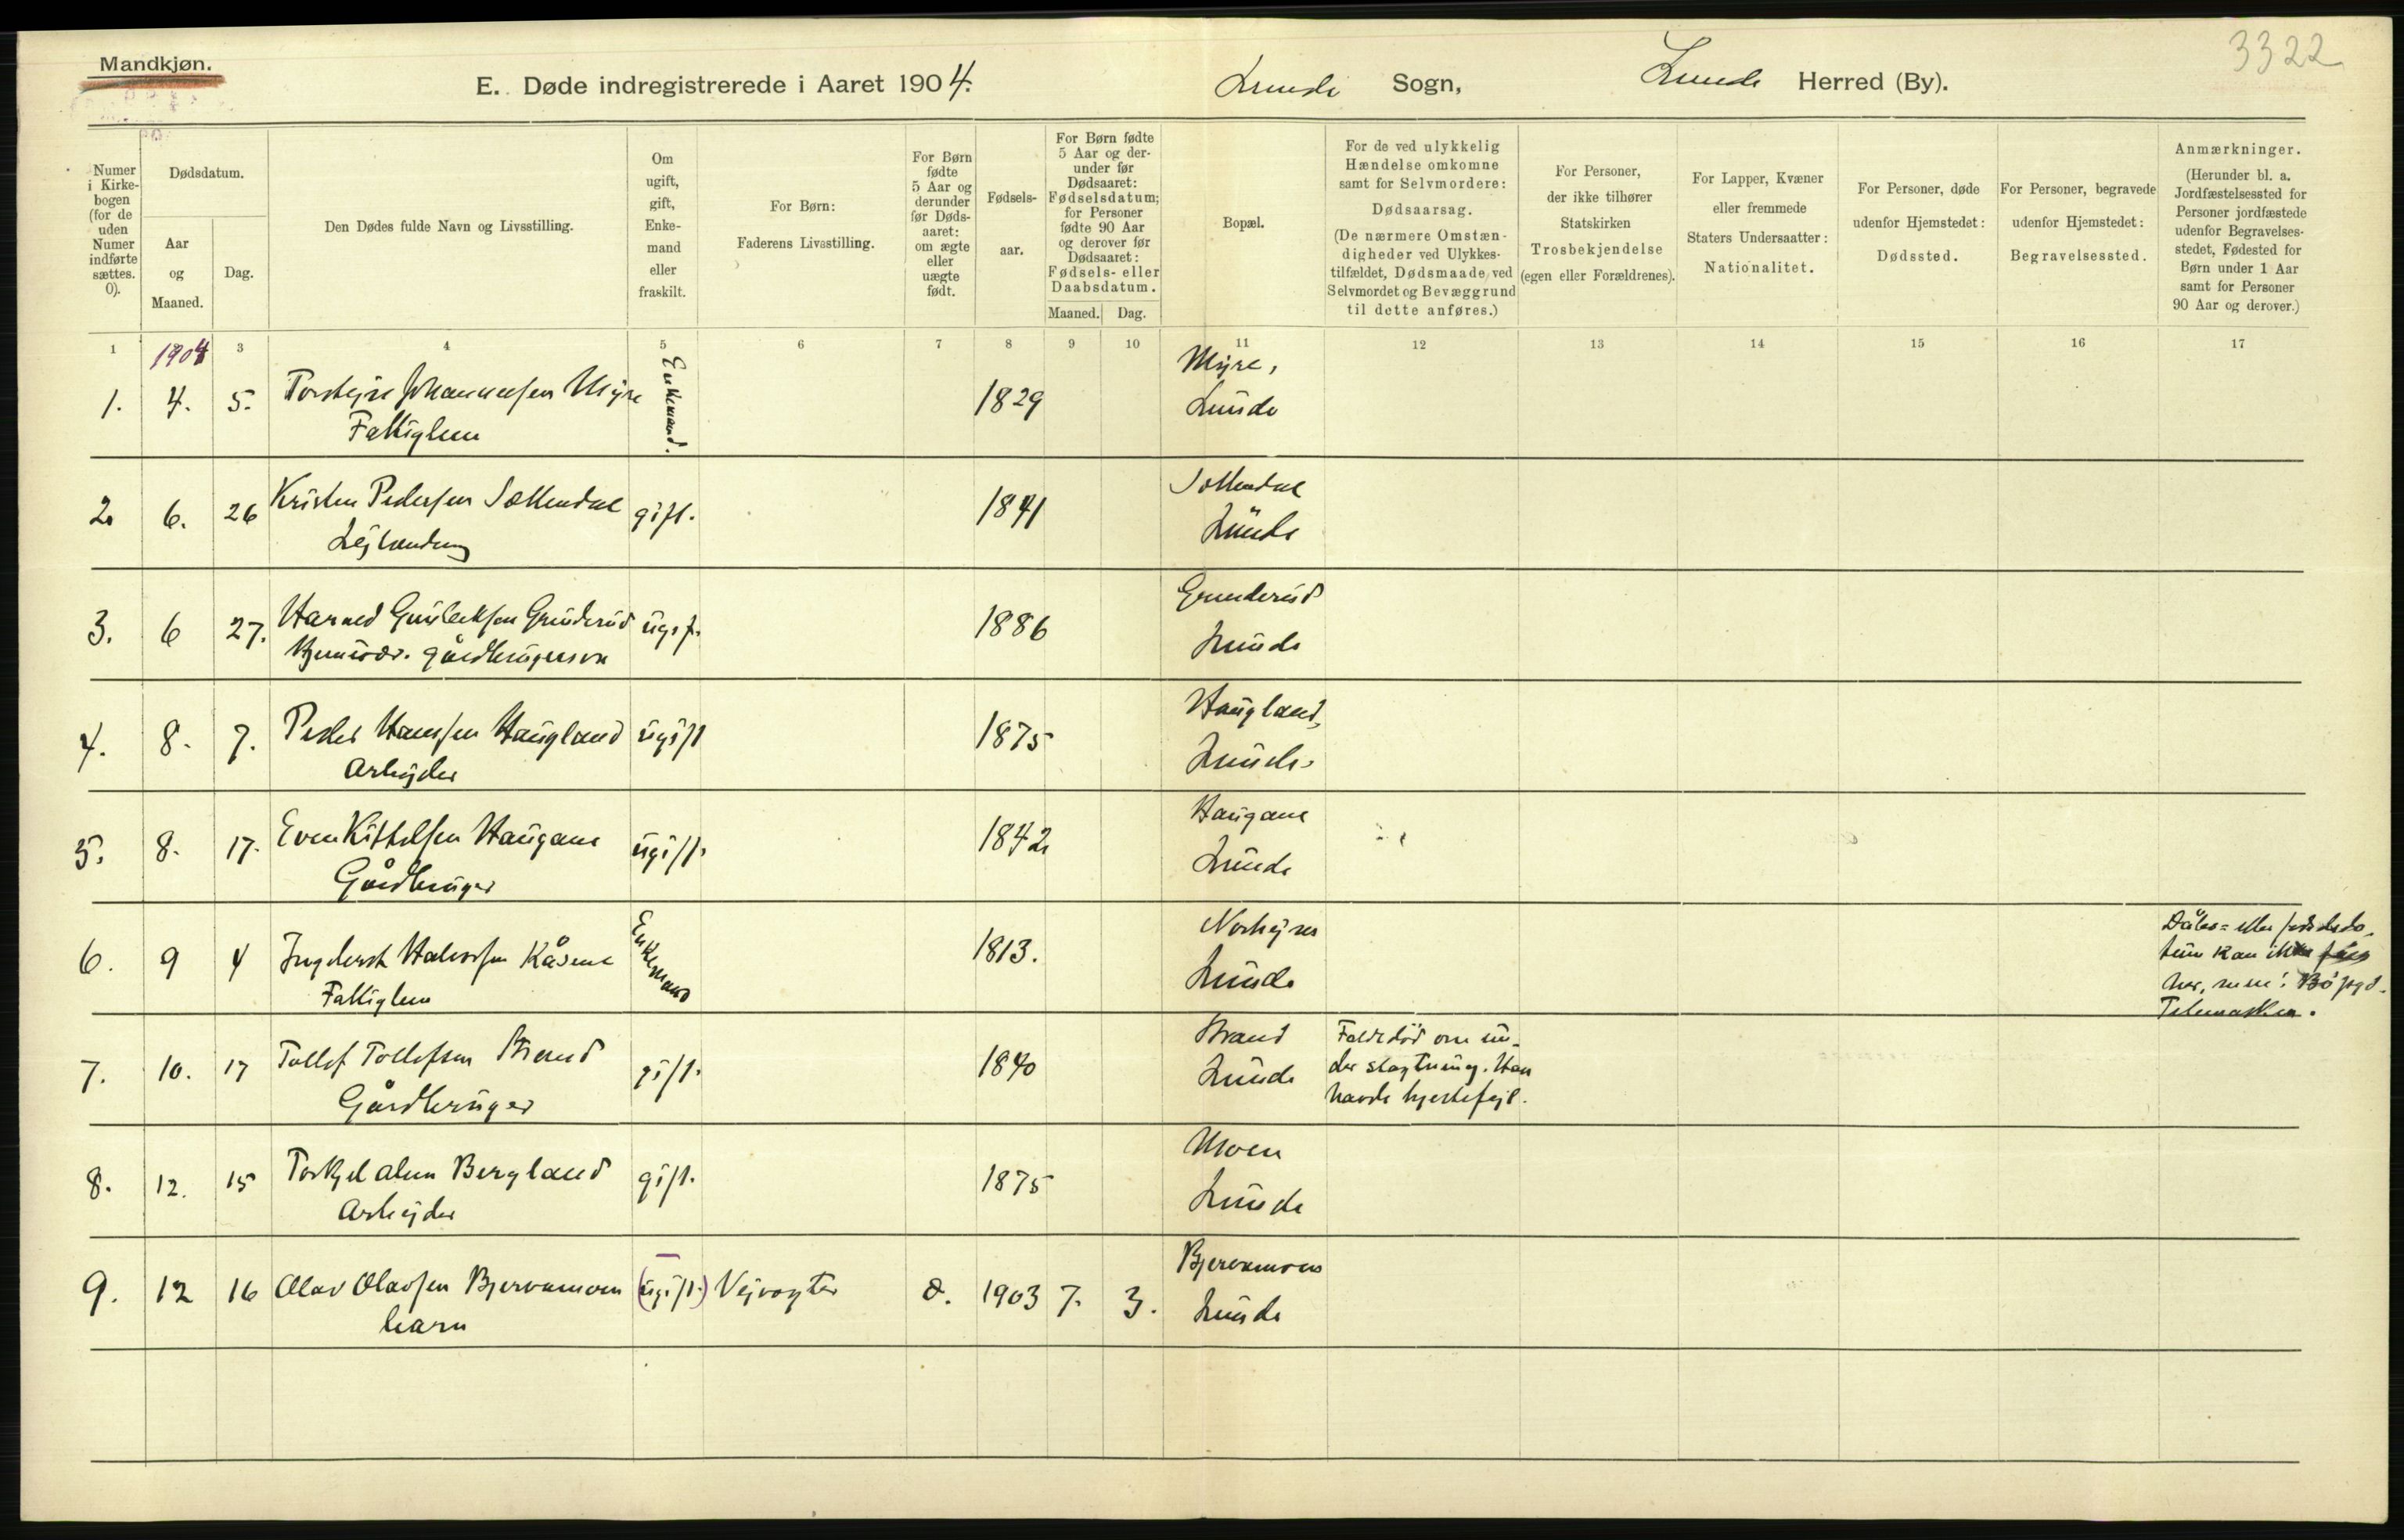 Mandkjøn.
3322
E. Døde indregistrerede i Aaret 1904. Lunde Sogn, Lunde Herred (By).
Numer i Kirke-bogen (for de uden Numer indførte sættes. 0).
Dødsdatum.
Aar og Maaned.
Dag.
Den Dødes fulde Navn og Livsstilling.
Om ugift, gift, Enke-mand eller fraskilt.
For Børn:
Faderens Livsstilling.
For Børn fødte 5 Aar og derunder før Døds-aaret: om ægte eller uægte født.
Fødsels-aar.
For Børn fødte 5 Aar og der-under før Dødsaaret: Fødselsdatum; for Personer fødte 90 Aar og derover før Dødsaaret: Fødsels- eller Daabsdatum.
Maaned. Dag.
Bopæl.
For de ved ulykkelig Hændelse omkomne samt for Selvmordere: Dødsaarsag.
(De nærmere Omstæn-digheder ved Ulykkes-tilfældet, Dødsmaade ved Selvmordet og Bevæggrund til dette anføres.)
For Personer, der ikke tilhører Statskirken Trosbekjendelse (egen eller Forældrenes).
For Lapper, Kvæner eller fremmede Staters Undersaatter: Nationalitet.
For Personer, døde udenfor Hjemstedet: Dødssted.
For Personer, begravede udenfor Hjemstedet: Begravelsessted.
Anmærkninger.
(Herunder bl. a. Jordfæstelsessted for Personer jordfæstede udenfor Begravelses-stedet, Fødested for Børn under 1 Aar samt for Personer 90 Aar og derover.)
1 3 4 5 6 7 8 9 10 11 12 13 14 15 16 17
1904
1. 4. 5. Johannesen Myre Enkemand. 1829 Myre,
Fattiglem Lunde
2. 6. 26 Kristen Pedersen gift. 1841
Lejlending Lunde
3. 6 27. Gunleiksen Grunderud ugift. 1886 Grunderud
gårdbrugersøn Lunde
4. 8. 7. Peder Hansen Haugland ugift 1875 Haugland,
Arbejder Lunde.
5. 8. 17. Even Kittelsen Haugane ugift. 1842 Haugane
Gårdbruger Lunde
6. 9 4 Halvorsen Kåsene Enkemand 1813.
Fattiglem Lunde
Dåbs= eller fødselsda-
tum kan ikke fåes
her, men i Bø pgd.
Telemarken.
7. 10. 17 Tollef Tollefsen Strand gift. 1840 Strand
Gårdbruger Lunde
Faldt død om un-
der slagtning. Han
havde hjertefejl.
8. 12. 15 Bergland gift. 1875 Moen
Arbejder Lunde
9. 12 16 Olav Olavsen Bjervamoen (ugift.) Vejvogter 1903 7. 3. Bjervamoen
barn Lunde